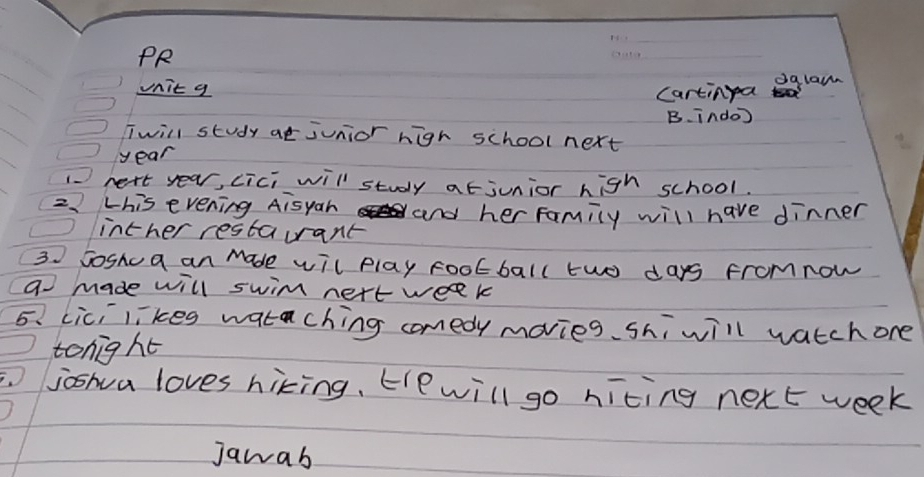 No
Date
PR
unit 9
(artinya dalam
B. indo)
i will study at junior high school next
year
1. next year, cici will study at junior high school.
2. this evening Aisyah and her Family will have dinner
inther restaurant
3. Joshua an Made wil play football two days From now
9. made will swim next week
5. cici likes wataching comedy movies. shi will watch one
tonight
joshua loves hiking. He will go hiting next week
jawab